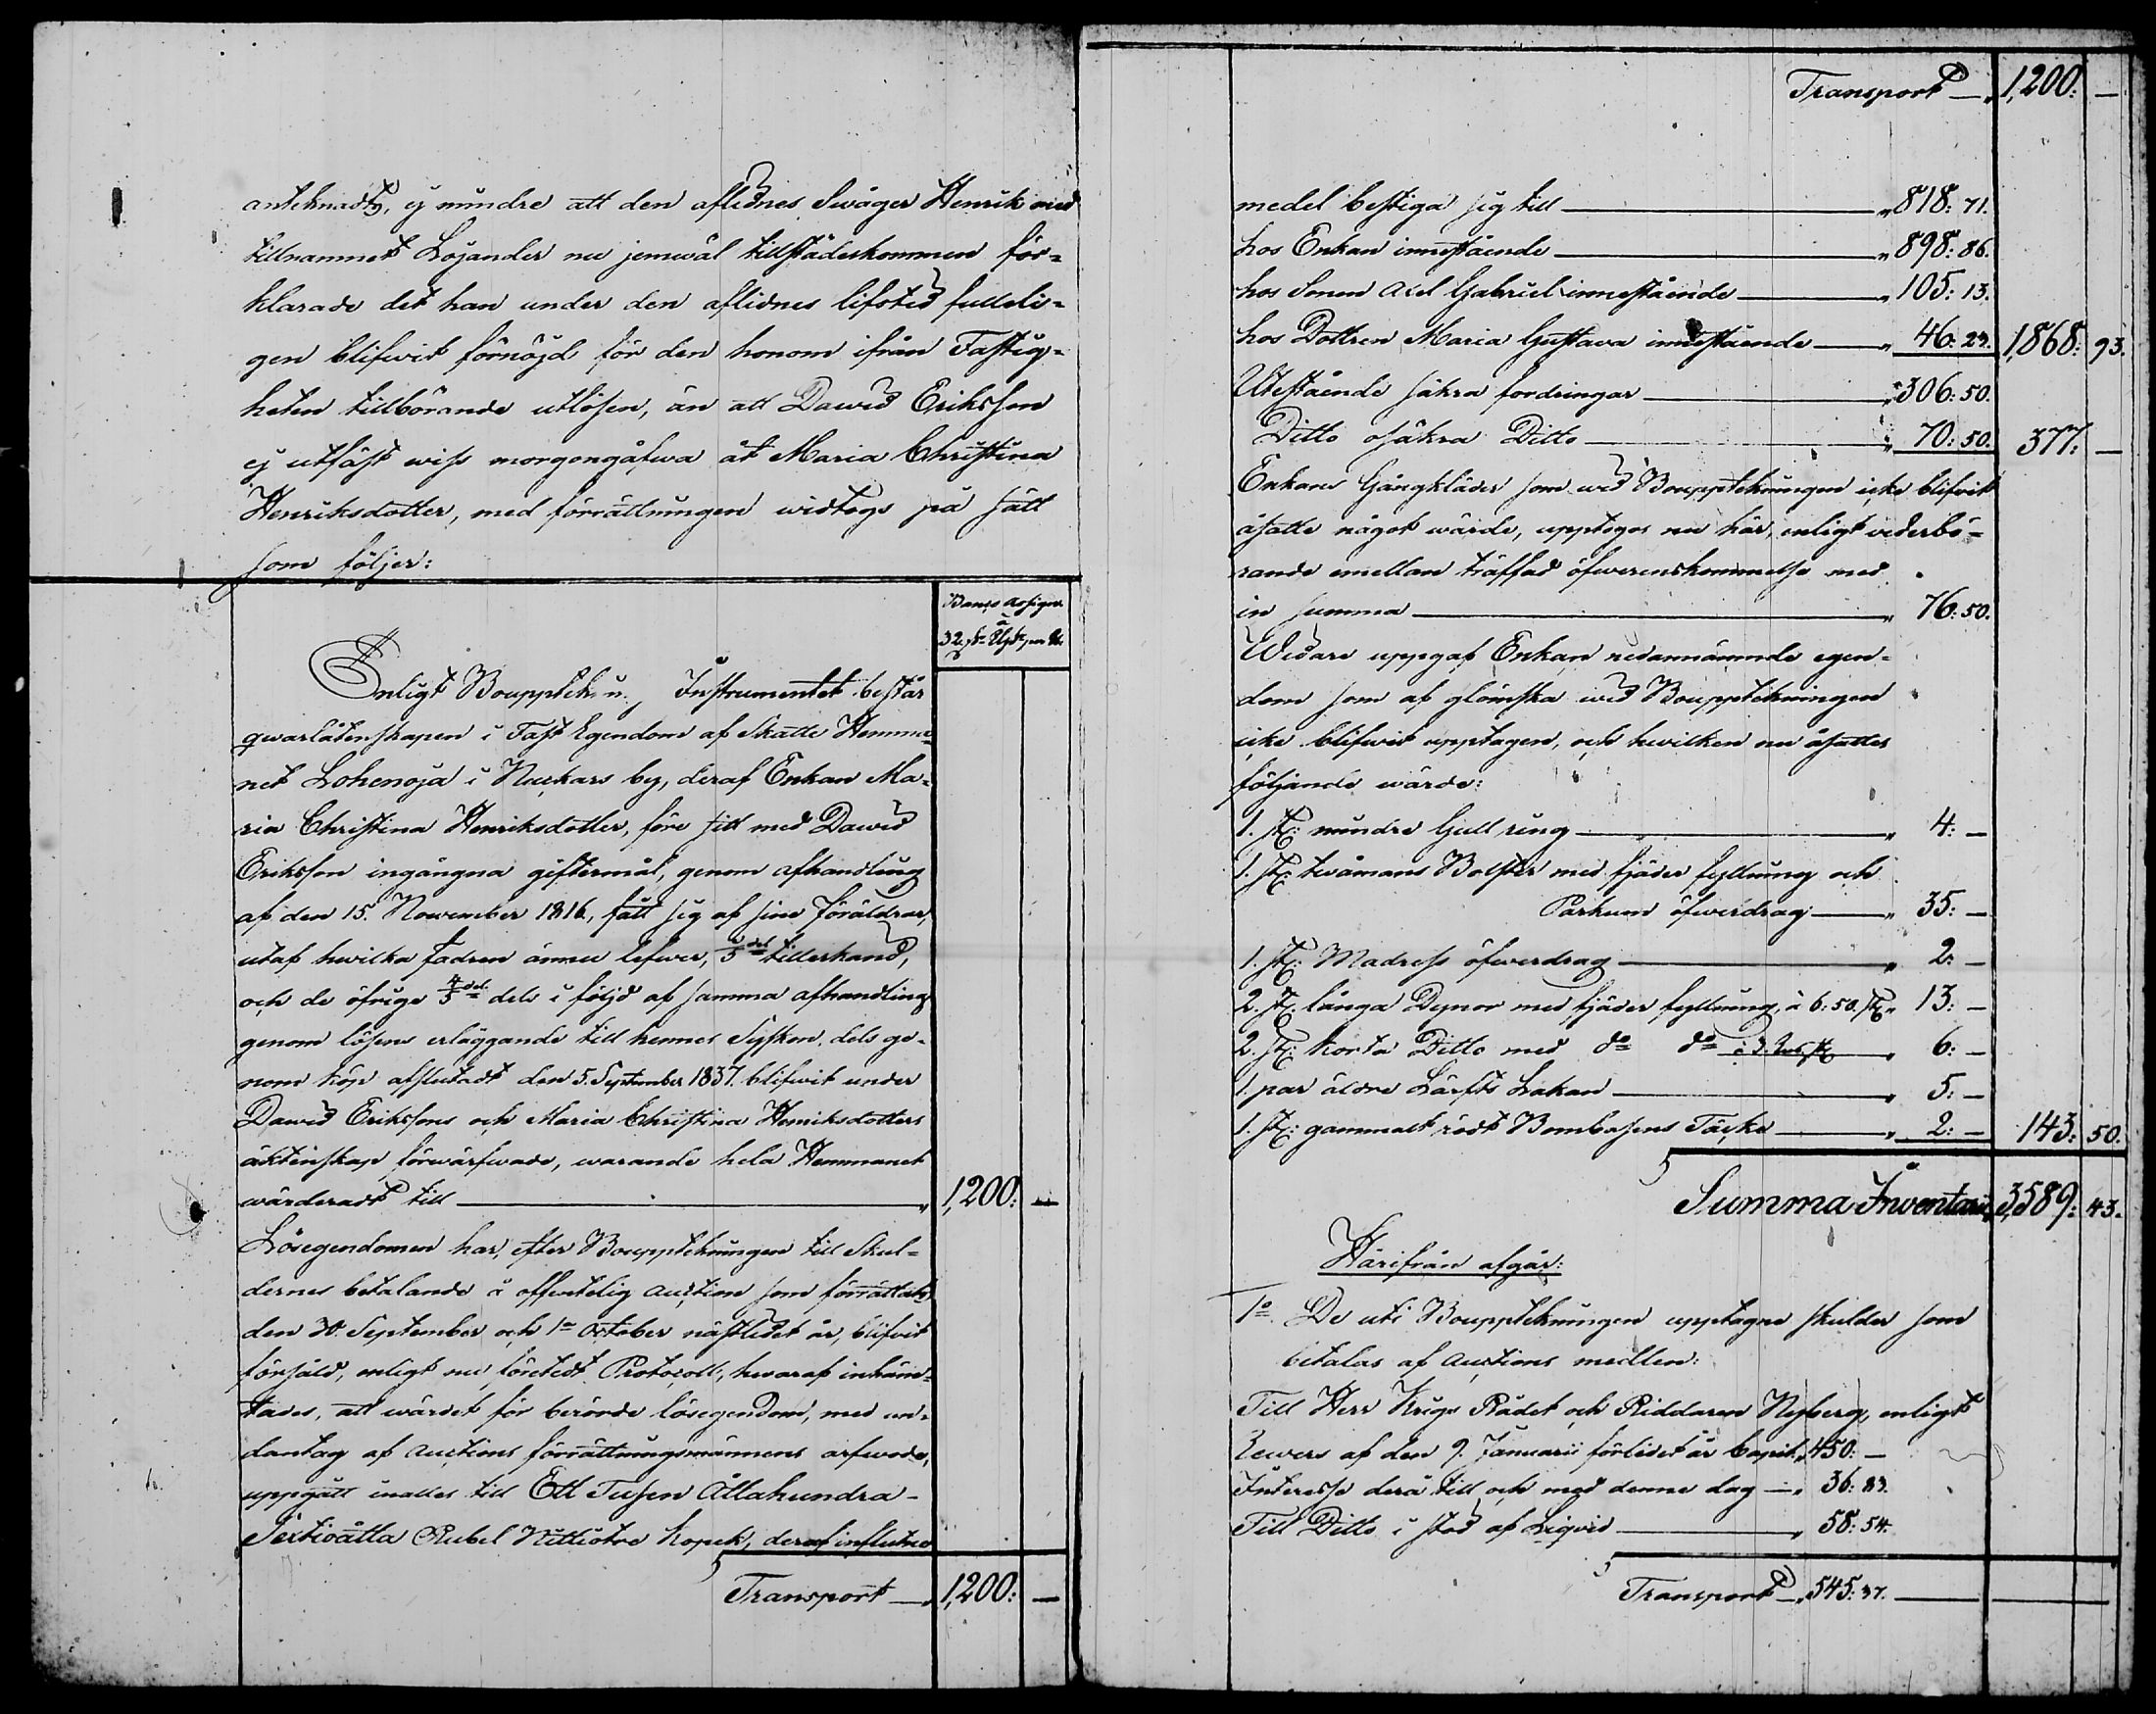 anteknadt, ej mindre att den aflidnes Swåger Henrik med
tillnamnet Löjander nu jemwäl tillstädeskommen för-
klarade det han under den aflidnes lifstid fulleli-
gen blifwit förnöjd för den honom ifrån Fastig-
heten tillbörande utlösen, än att Dawid Eriksson
ej utfäst wiss morgongåfwa åt Maria Christina
Henriksdotter, med förrättningen widtogs på sätt
som följer:
Banco Assign.
à
32
Enligt Bouppteckn: Instrumentet består
qwarlåtenskapen i Fast Egendom af Skatte Hemma-
net Lohenoja i Nuckars by, deraf Enkan Ma-
ria Christina Henriksdotter, före sitt med Dawid
Eriksson ingångna giftermål, genom afhandling
af den 15. November 1816, fått sig af sine föräldrar,
utaf hwilka fadren ännu lefwer, 1/5 del tillerkänd,
och de öfrige 4/5 del dels i följd af samma afhandling
genom lösens erläggande till hennes Syskon, dels ge-
nom köp afslutadt den 5. September 1837. blifwit under
Dawid Erikssons och Maria Christina Henriksdotters
äktenskap förwärfwade, warande hela Hemmanet
wärderadt till — „ 1,200: —
Lösegendomen har, efter Bouppteckningen till Skul-
dernes betalande å offentelig auction som förrättats
den 30. September och 1=a October nästlidet år, blifvit
försåld, enligt nu företedt Protocoll, hwaraf inhäm-
tades, att wärdet för berörde lösegendom, med un-
dantag af auctions förrättningsmännens arfwode,
uppgått inalles till Ett Tusen Åttahundra-
Sextioåtta Rubel Nittiotre Kopek, deraf influtne
Transport — „ 1,200: —
Transport — „ 1,200: —
medel bestiga sig till — „ 818: 71.
hos Enkan innestående — „ 898: 86.
hos Sonen Axel Gabriel innestående — „ 105: 13.
hos Dottren Maria Gustava innestående — „ 46: 23. 1,868: 93.
Utestående säkra fordringar — „ 306: 50.
Ditto osäkra Ditto — „ 70: 50. 377: —
Enkans Gångkläder som wid Bouppteckningen icke blifvit
åsatte något wärde, upptogos nu här, enligt vederbö-
rande emellan träffad öfwerenskommelse med
in summa — „ 76: 50.
Widare uppgaf Enkan nedannämnde egen-
dom som af glömska wid Bouppteckningen
icke blifwit upptagen, och hwilken nu åsattes
följande wärde:
1. st: mindre Gull ring — „ 4: —
1. st: twåmans Bolster med fjäder fyllning och
Parkum öfwerdrag — „ 35: —
1. st: Madrass öfwerdrag — „ 2: —
2. st: långa Dynor med fjäder fyllning, à 6: 50. st „ 13: —
2. st: korta Ditto med d:o d:o à 3. Rub. st — „ 6: —
1 par äldre Lärfts Lakan — „ 5: —
1. st: gammalt rödt Bombasins Täcke — „ 2: — 143: 50.
Summa Inventarii 3,589: 43.
Härifrån afgår:
1:o De uti Bouppteckningen upptagne skulder som
betalas af auctions medlen:
Till Herr Krigs Rådet och Riddaren Nyberg, enligt
Revers af den 9. Januarii förlidet år Capit. „ 450: —
Interesse derå till och med denne dag — „ 36: 83.
Till Ditto i stöd af Liqvid — „ 58: 54.
Transport — „ 545: 37. —